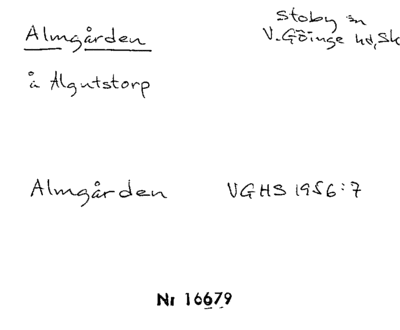 Almgården
Stoby sn
V. Göinge hd, Sk
å Algutstorp
Almgården VGHS 1956:7
Nr 16679